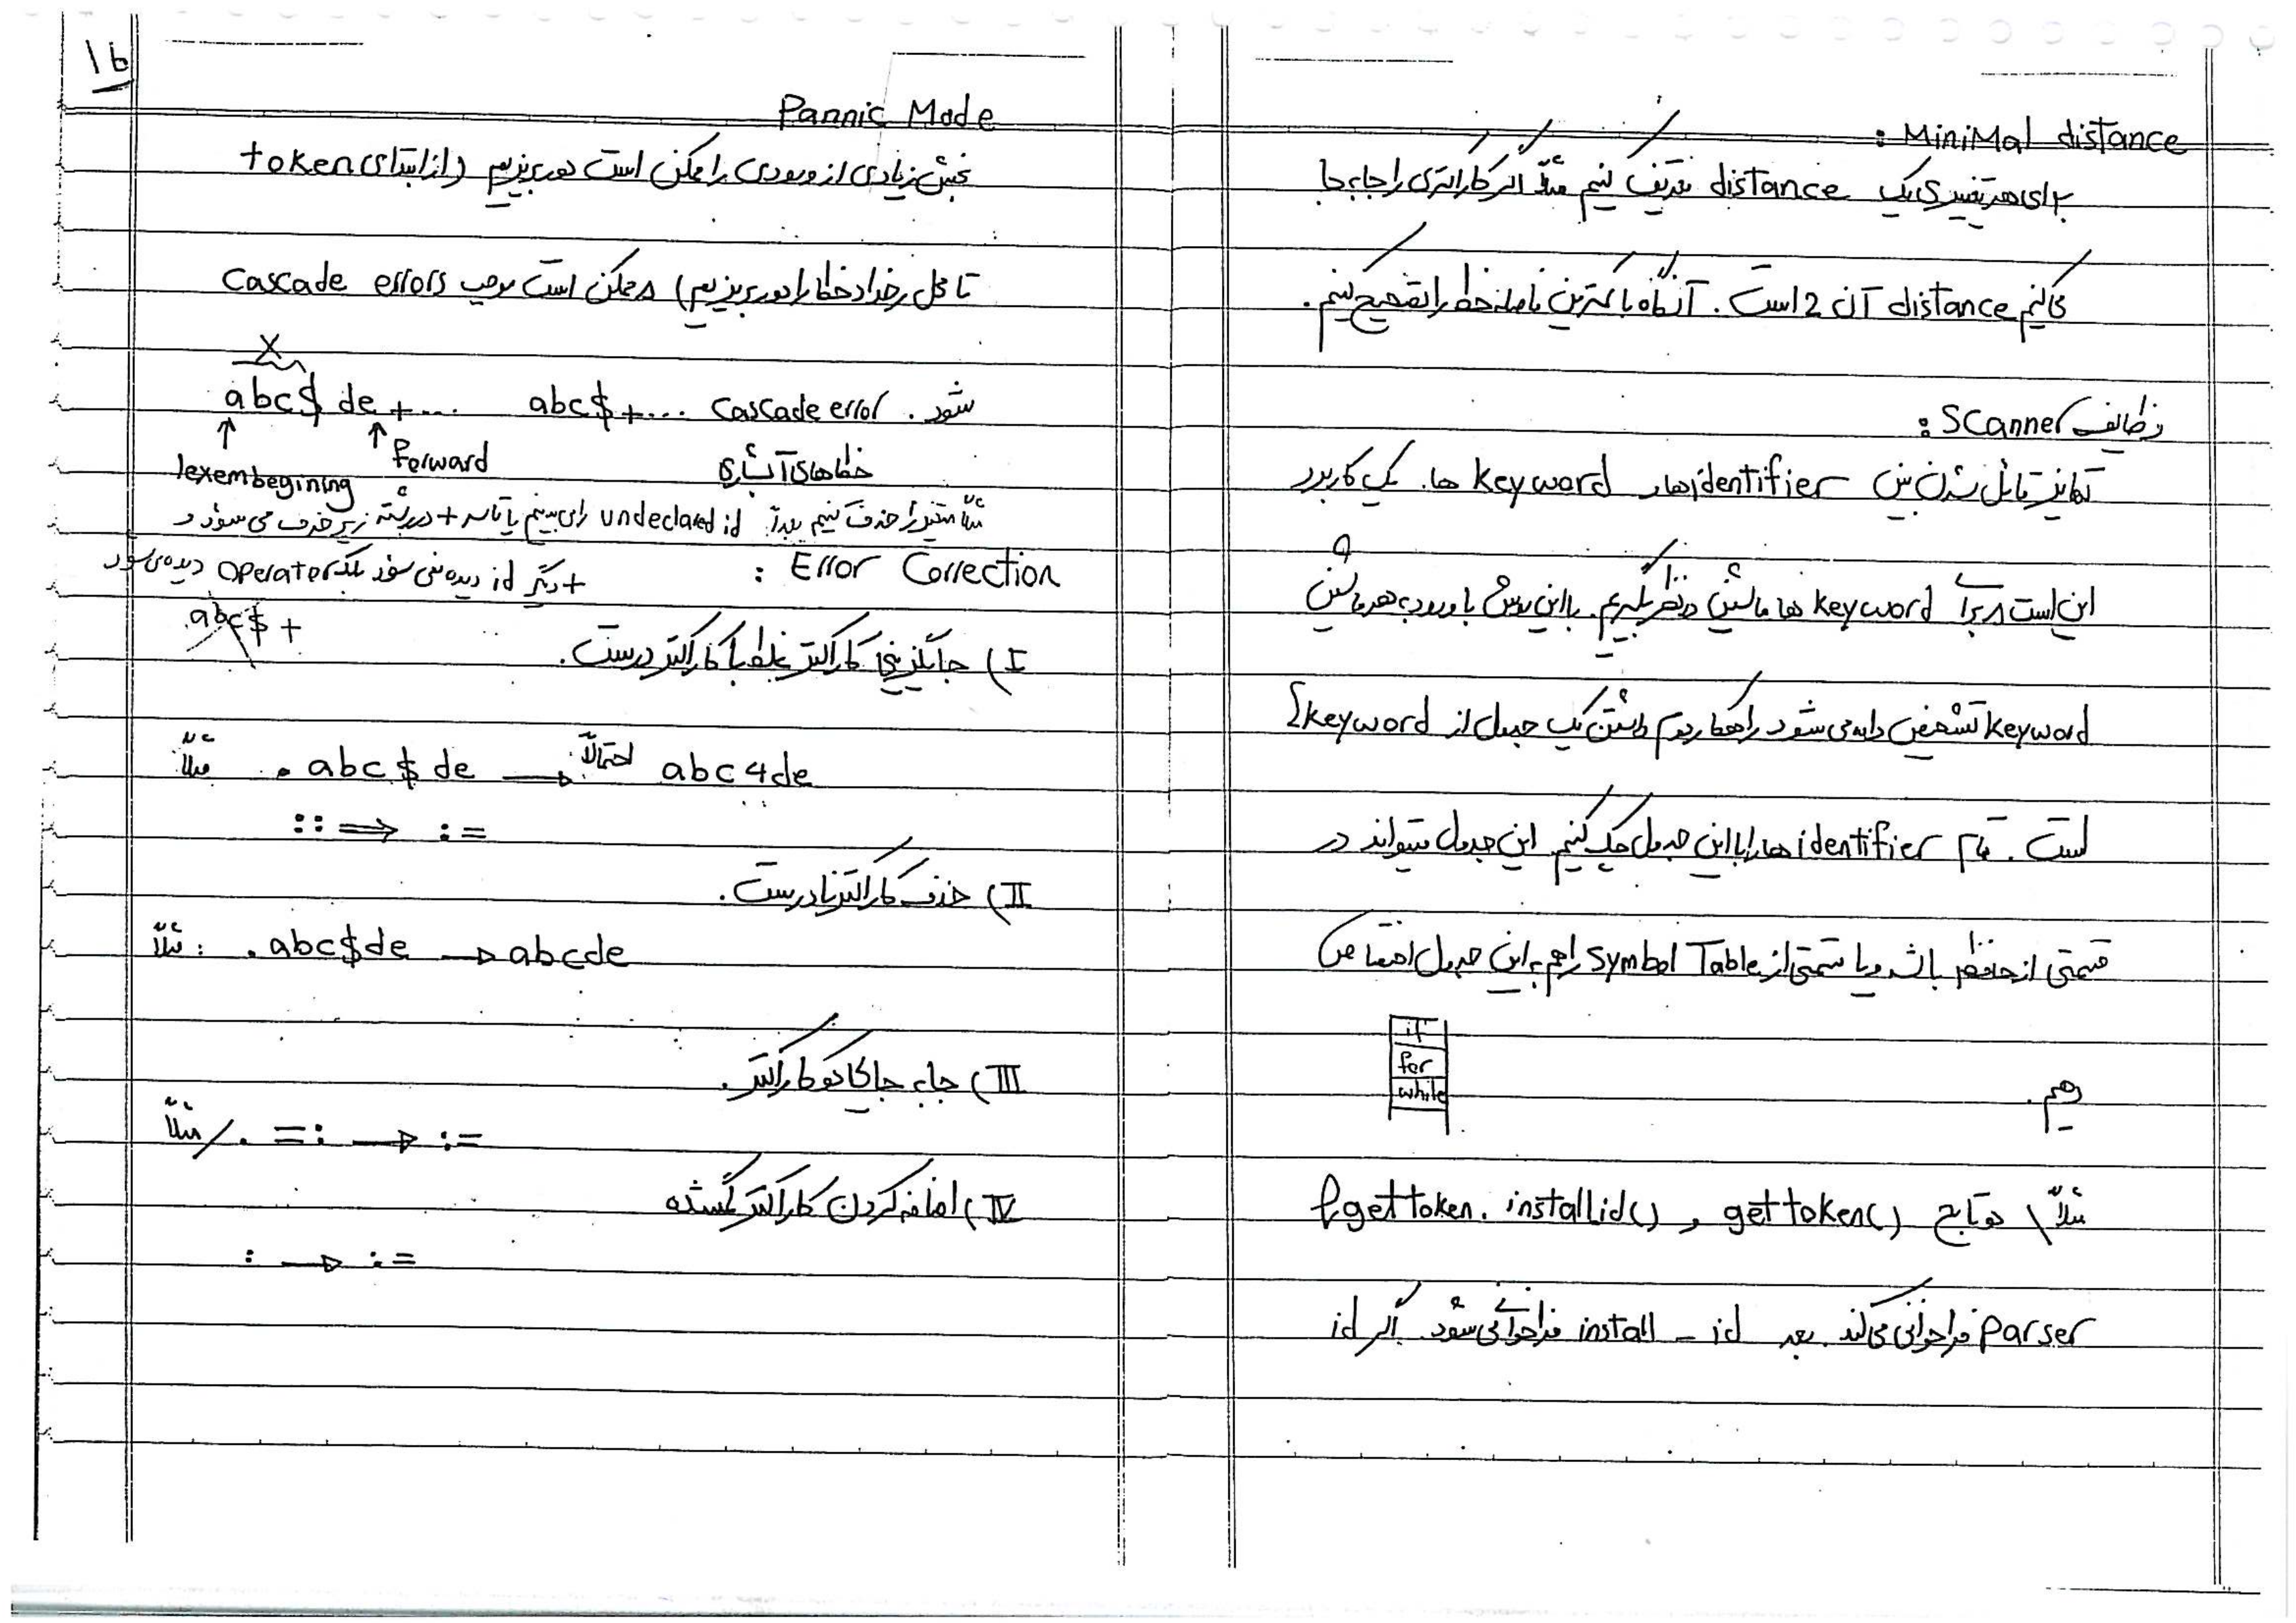 16
Pannic Mode
بخش زیادی از ورودی را ممکن است دور بریزیم (از ابتدای token
تا محل رخداد خطا را دور بریزیم) ممکن است موجب cascade errors
شود. cascade error abc$+... abc$ de+...
X
خطاهای آبشاری
forward
lexembegining
مثلاً متغیر را حذف کنیم بعداً undeclared id را می بینیم یا تا سر + در رشته زیر حذف می شود و
+ دیگر id دیده نمی شود بلکه operator دیده می شود
abc$ +
Error Correction :
I) جایگزینی کاراکتر غلط با کاراکتر درست.
مثلاً . abc$de → احتمالاً abc4de
:: ⇒ :=
II) حذف کاراکتر نادرست.
مثلاً: . abc$de → abcde
III) جابه جایی دو کاراکتر.
مثلاً . =: → :=
IV) اضافه کردن کاراکتر گمشده
: → :=
MiniMal distance :
برای هر تغییری یک distance تعریف کنیم مثلاً اگر کاراکتری را جابه جا
کنیم distance آن 2 است. آنگاه با کمترین فاصله خطا را تصحیح کنیم.
وظایف Scanner :
تمایز قایل شدن بین identifier ها و keyword ها. یک کاربرد
این است برای keyword ها ماشین در نظر بگیریم. با این روش با ورود به هر ماشین
keyword تشخیص داده می شود. راهکار دوم داشتن یک جدول از keyword
است. تمام identifier ها را با این جدول چک کنیم این جدول میتواند در
قسمتی از حافظه باشد و یا قسمتی از Symbol Table را هم به این جدول اختصاص
دهیم.
if
for
while
مثلاً دو تابع gettoken() و installid() . gettoken
parser فراخوانی می کند بعد install - id فراخوانی می شود. اگر id